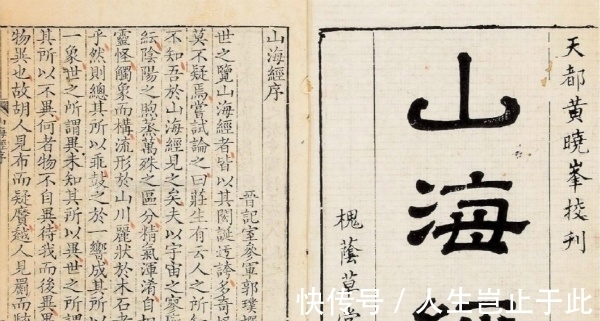 天都黄曉峯校刊
山海
槐蔭草堂
山海經序
晉記室參軍郭璞撰
世之覽山海經者皆以其閎誕迂誇多奇怪
莫不疑焉嘗試論之曰莊生有云人之所知
不知吾於山海經見之矣夫以宇宙之寥
紜陰陽之煦蒸萬殊之區分精氣渾淆自
靈怪觸象而構流形於山川麗狀於木石者
乎然則總其所以乖鼓之於一響成其所
一象世之所謂異未知其所以異世之所謂
其所以不異何者物不自異待我而後異
物異也故胡人見布而疑黂越人見罽而
山海經序
快传号 / 人生岂止于此